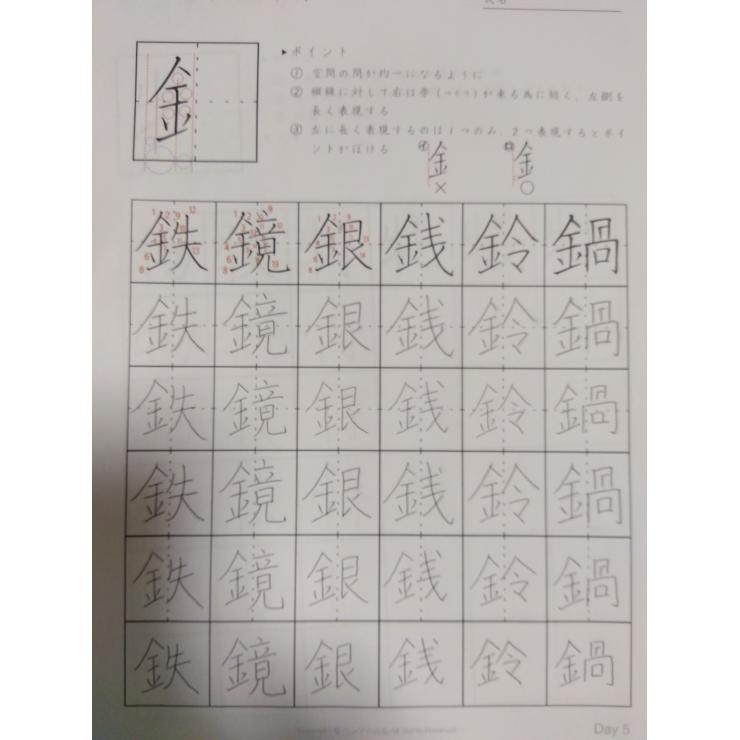 金
▶ポイント
① 空間の間が均一になるように
② 縦線に対して右は旁(つくり)が来る為に短く、左側を
長く表現する
③ 左に長く表現するのは1つのみ、2つ表現するとポイ
ントがぼける
イ 金 × ロ 金 ○
鉄 鏡 銀 銭 鈴 鍋
鉄 鏡 銀 銭 鈴 鍋
鉄 鏡 銀 銭 鈴 鍋
鉄 鏡 銀 銭 鈴 鍋
鉄 鏡 銀 銭 鈴 鍋
鉄 鏡 銀 銭 鈴 鍋
Day 5